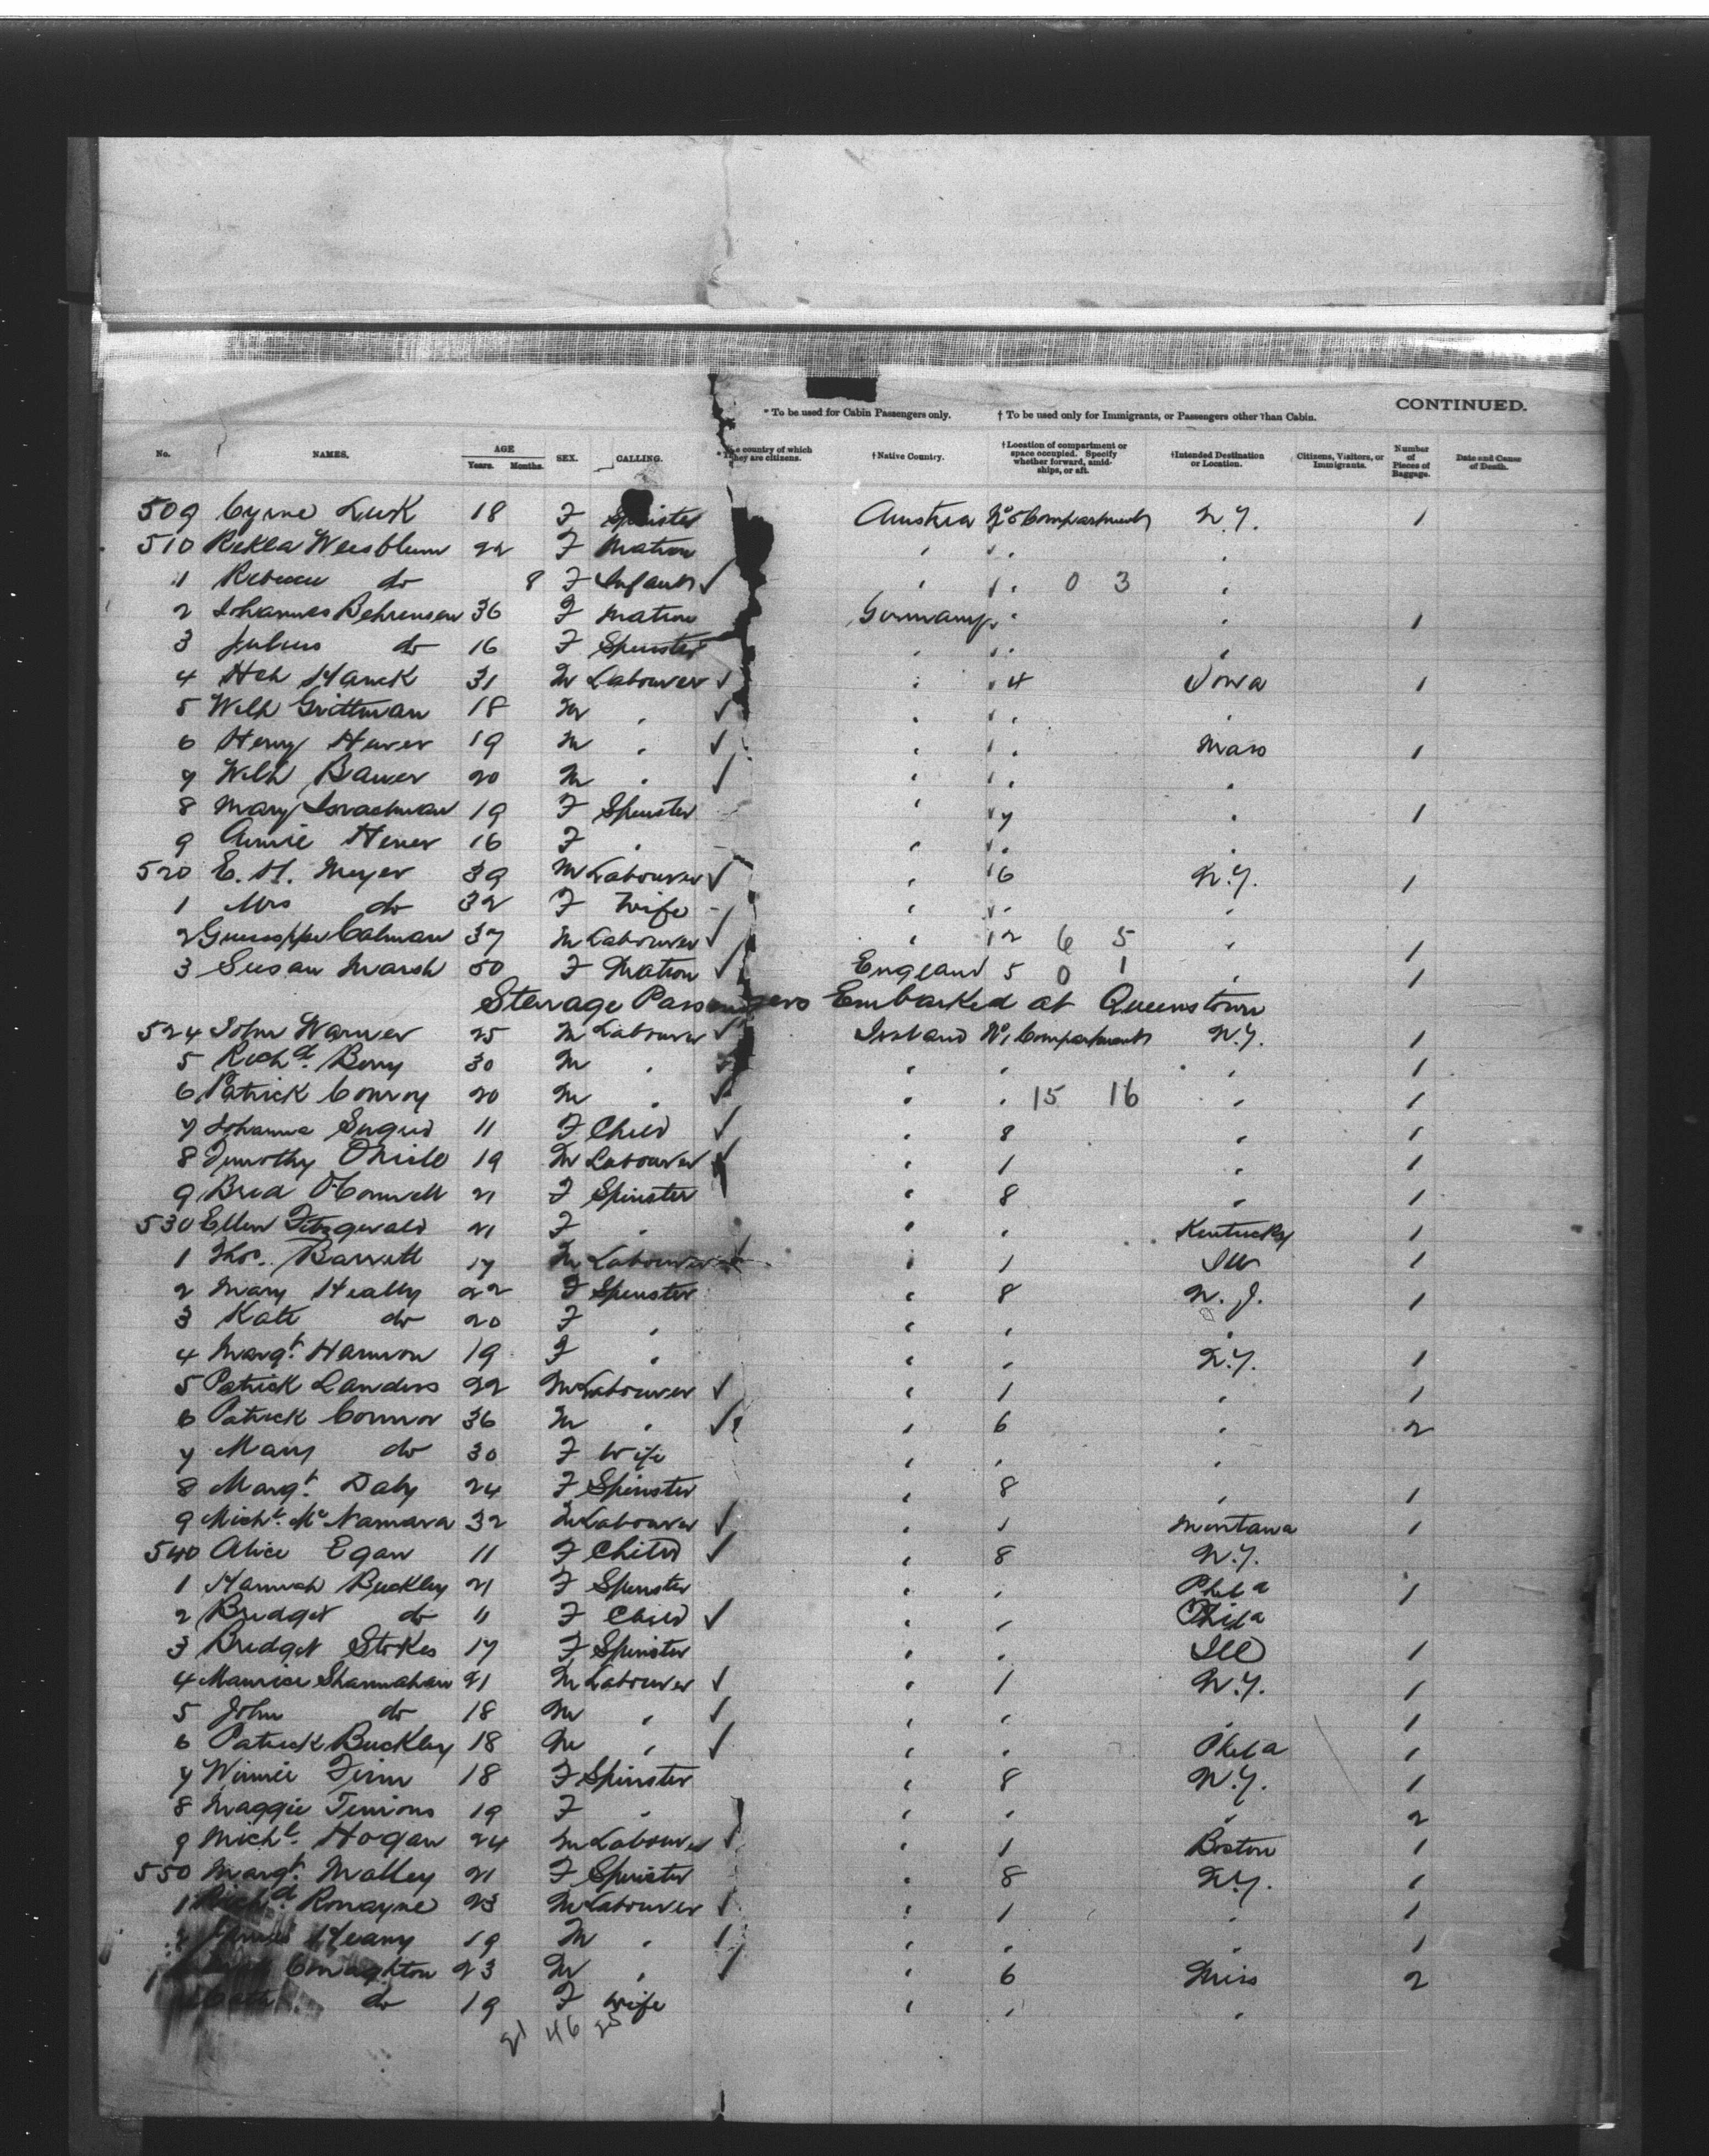 CONTINUED.
* To be used for Cabin Passengers only. † To be used only for Immigrants, or Passengers other than Cabin.
No. NAMES. AGE Years. Months. SEX. CALLING. * The country of which they are citizens. † Native Country. † Location of compartment or space occupied. Specify whether forward, amidships, or aft. † Intended Destination or Location. Citizens, Visitors, or Immigrants. Number of Pieces of Baggage. Date and Cause of Death.
509 Cyrne Lusk 18 F Spinster Austria No 5 Compartment N.Y. 1
510 Rekla Weisblum 22 F Matron " " "
1 Rebecca do 8 F Infant ✓ " " 0 3 "
2 Johannes Behrensen 36 F Matron Germany " " 1
3 Julius do 16 F Spinster " " "
4 Hch Hanck 31 M Labourer ✓ " 4 Iowa 1
5 Wilh Grittman 18 M " ✓ " " "
6 Henry Hever 19 M " ✓ " " Mass 1
7 Wilh Bauer 20 M " ✓ " " "
8 Mary 19 F Spinster " 7 " 1
9 Annie Hener 16 F " " " "
520 E. H. Meyer 39 M Labourer ✓ " 6 N.Y. 1
1 Mrs do 32 F Wife " " "
2 Guiseppe Calman 37 M Labourer ✓ " 2 6 5 " 1
3 Susan Marsh 50 F Matron ✓ England 5 0 1 " 1
Steerage Passengers Embarked at Queenstown
524 John Warner 25 M Labourer ✓ Ireland No 1 Compartment N.Y. 1
5 Richd. Berry 30 M " ✓ " " " 1
6 Patrick Conroy 20 M " ✓ " " 15 16 " 1
7 Johanna 11 F Child ✓ " 8 " 1
8 Timothy ONeile 19 M Labourer ✓ " 1 " 1
9 Brid O'Connell 21 F Spinster " 8 " 1
530 Ellen Fitzgerald 21 F " " " Kentucky 1
1 Thos. Barrett 17 M Labourer ✓ " 1 Ill 1
2 Mary Heally 22 F Spinster " 8 N.J. 1
3 Kate do 20 F " " " "
4 Margt. Hannon 19 F " " " N.Y. 1
5 Patrick Landers 22 M Labourer ✓ " 1 " 1
6 Patrick Connor 36 M " ✓ " 6 " 2
7 Mary do 30 F Wife " " "
8 Margt. Daly 24 F Spinster " 8 " 1
9 Michl. McNamara 32 M Labourer ✓ " 1 Montana 1
540 Alice Egan 11 F Child ✓ " 8 N.Y.
1 Hannah Buckley 21 F Spinster " " Phila 1
2 Bridget do 11 F Child ✓ " " Phila
3 Bridget Stokes 17 F Spinster " " Ill 1
4 Maurice Shannahan 21 M Labourer ✓ " 1 N.Y. 1
5 John do 18 M " ✓ " " " 1
6 Patrick Buckley 18 M " ✓ " " Phila 1
7 Winnie Finn 18 F Spinster " 8 N.Y. 1
8 Maggie Timons 19 F " " " " 2
9 Michl. Hogan 24 M Labourer ✓ " 1 Boston 1
550 Margt. Malley 21 F Spinster " 8 N.Y. 1
1 Richd. Ronayne 23 M Labourer ✓ " 1 " 1
2 James Heany 19 M " ✓ " " " 1
Connaghton 23 M " ✓ " 6 Miss 2
Cath do 19 F Wife " " "
21 46 25